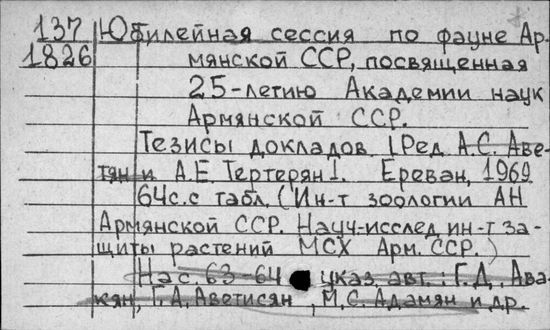 137 Юбилейная сессия по фауне Ар-
1826 мянской ССР, посвященная
25-летию Академии наук
Армянской ССР.
Тезисы докладов [Ред А.С. Аве-
тян и А.Е. Тертерян]. Ереван, 1969
64с. с табл. (Ин-т зоологии АН
Армянской ССР. Науч-исслед ин-т за-
щиты растений МСХ Арм. ССР.)
На с. 63-64 указ. авт.: Г.Д. Ава-
кян, Г.А. Аветисян, М.С. Адамян и др.